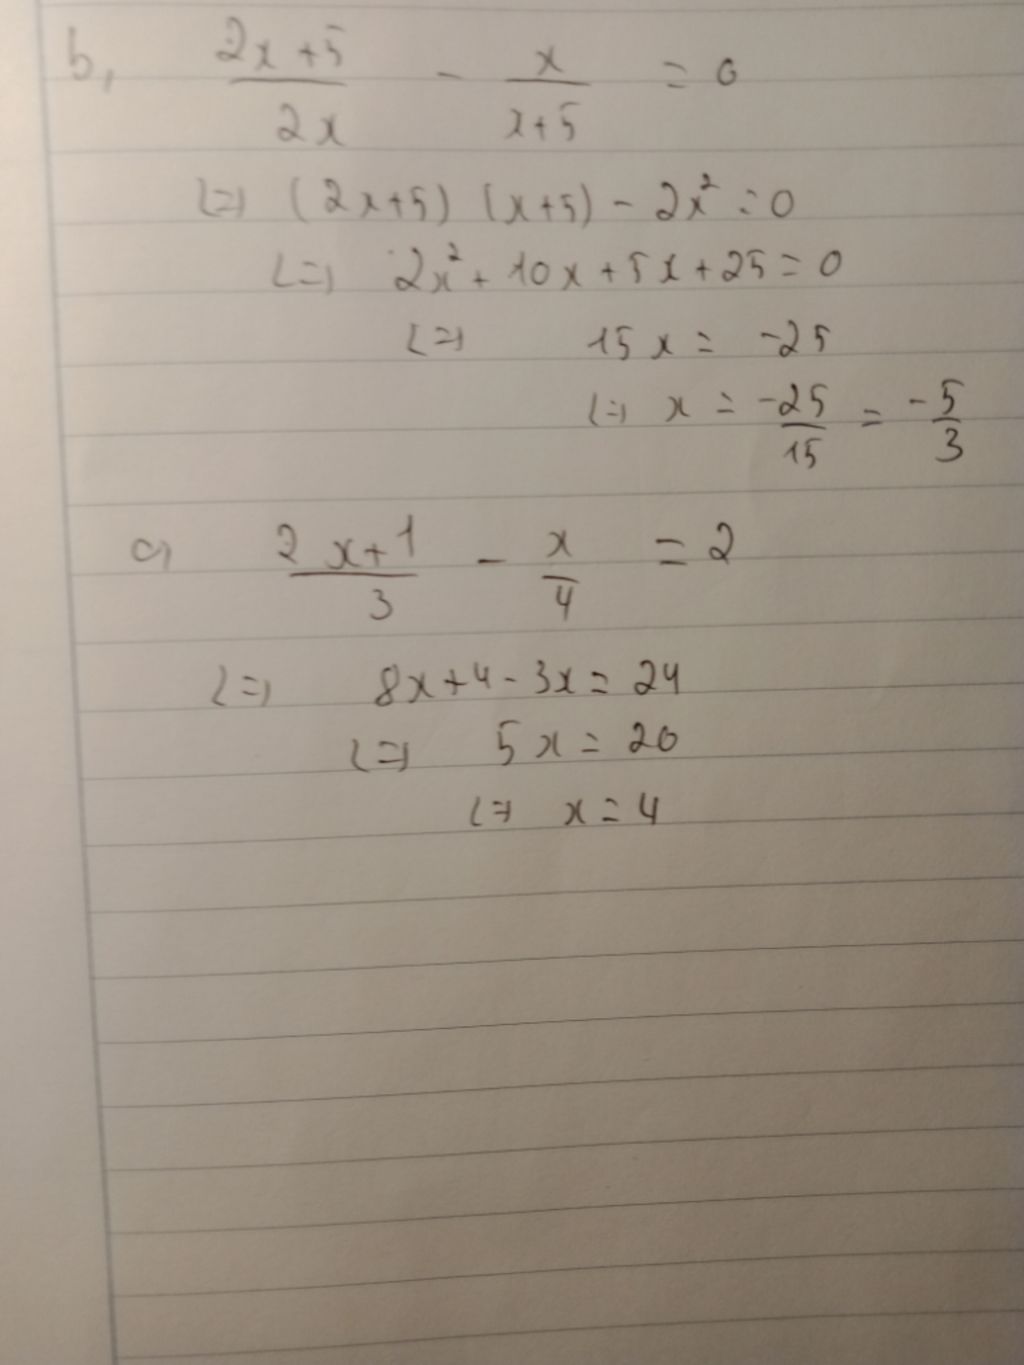 b, (2x+5)/(2x) - x/(x+5) = 0
<=> (2x+5) (x+5) - 2x² = 0
<=> 2x² + 10x + 5x + 25 = 0
<=> 15x = -25
<=> x = -25/15 = -5/3
c, (2x+1)/3 - x/4 = 2
<=> 8x+4-3x = 24
<=> 5x = 20
<=> x = 4